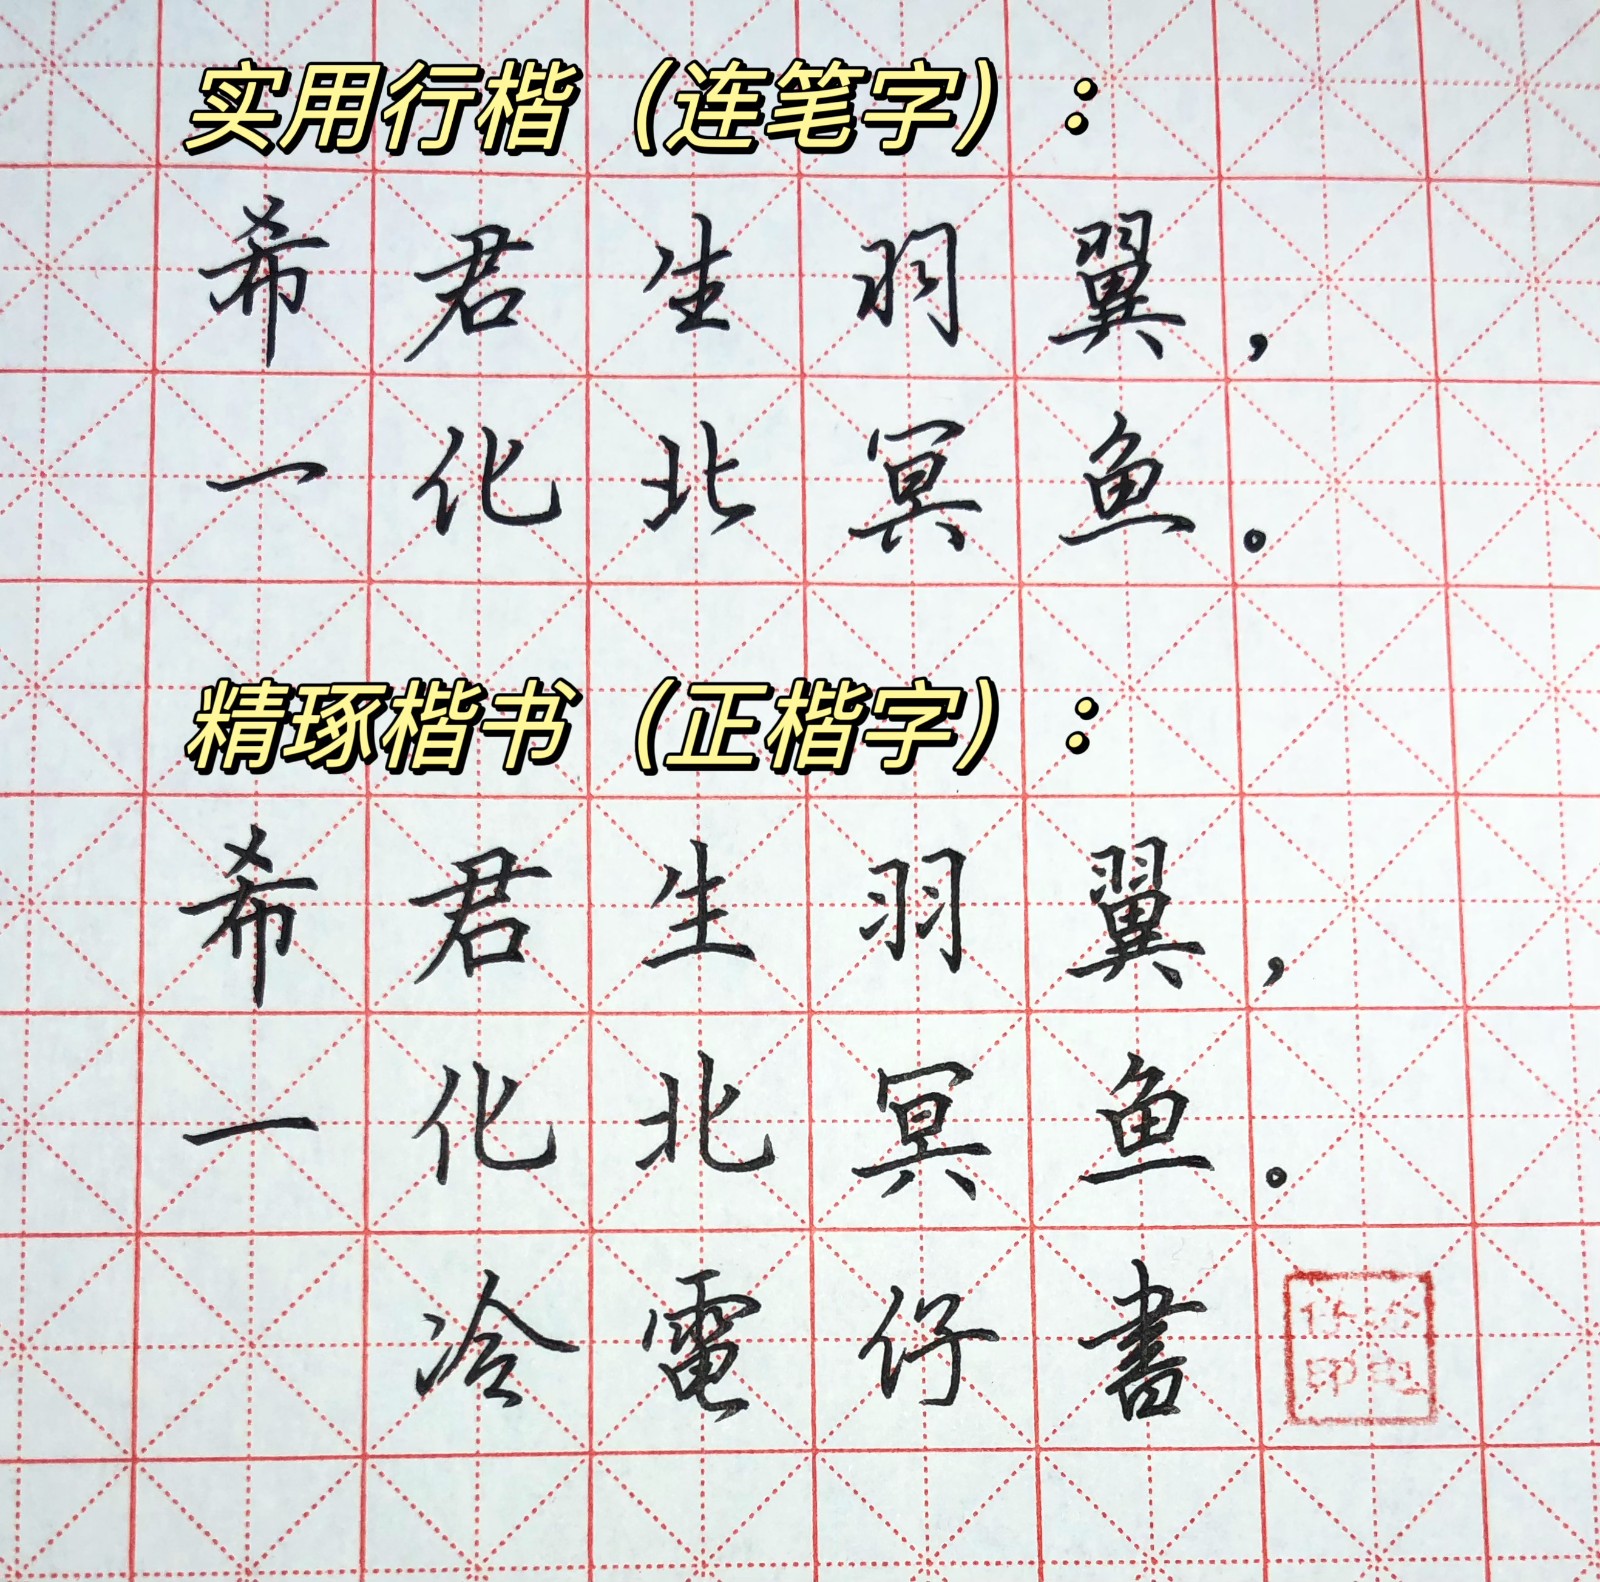 实用行楷（连笔字）：
希君生羽翼，
一化北冥鱼。
精琢楷书（正楷字）：
希君生羽翼，
一化北冥鱼。
冷電仔書